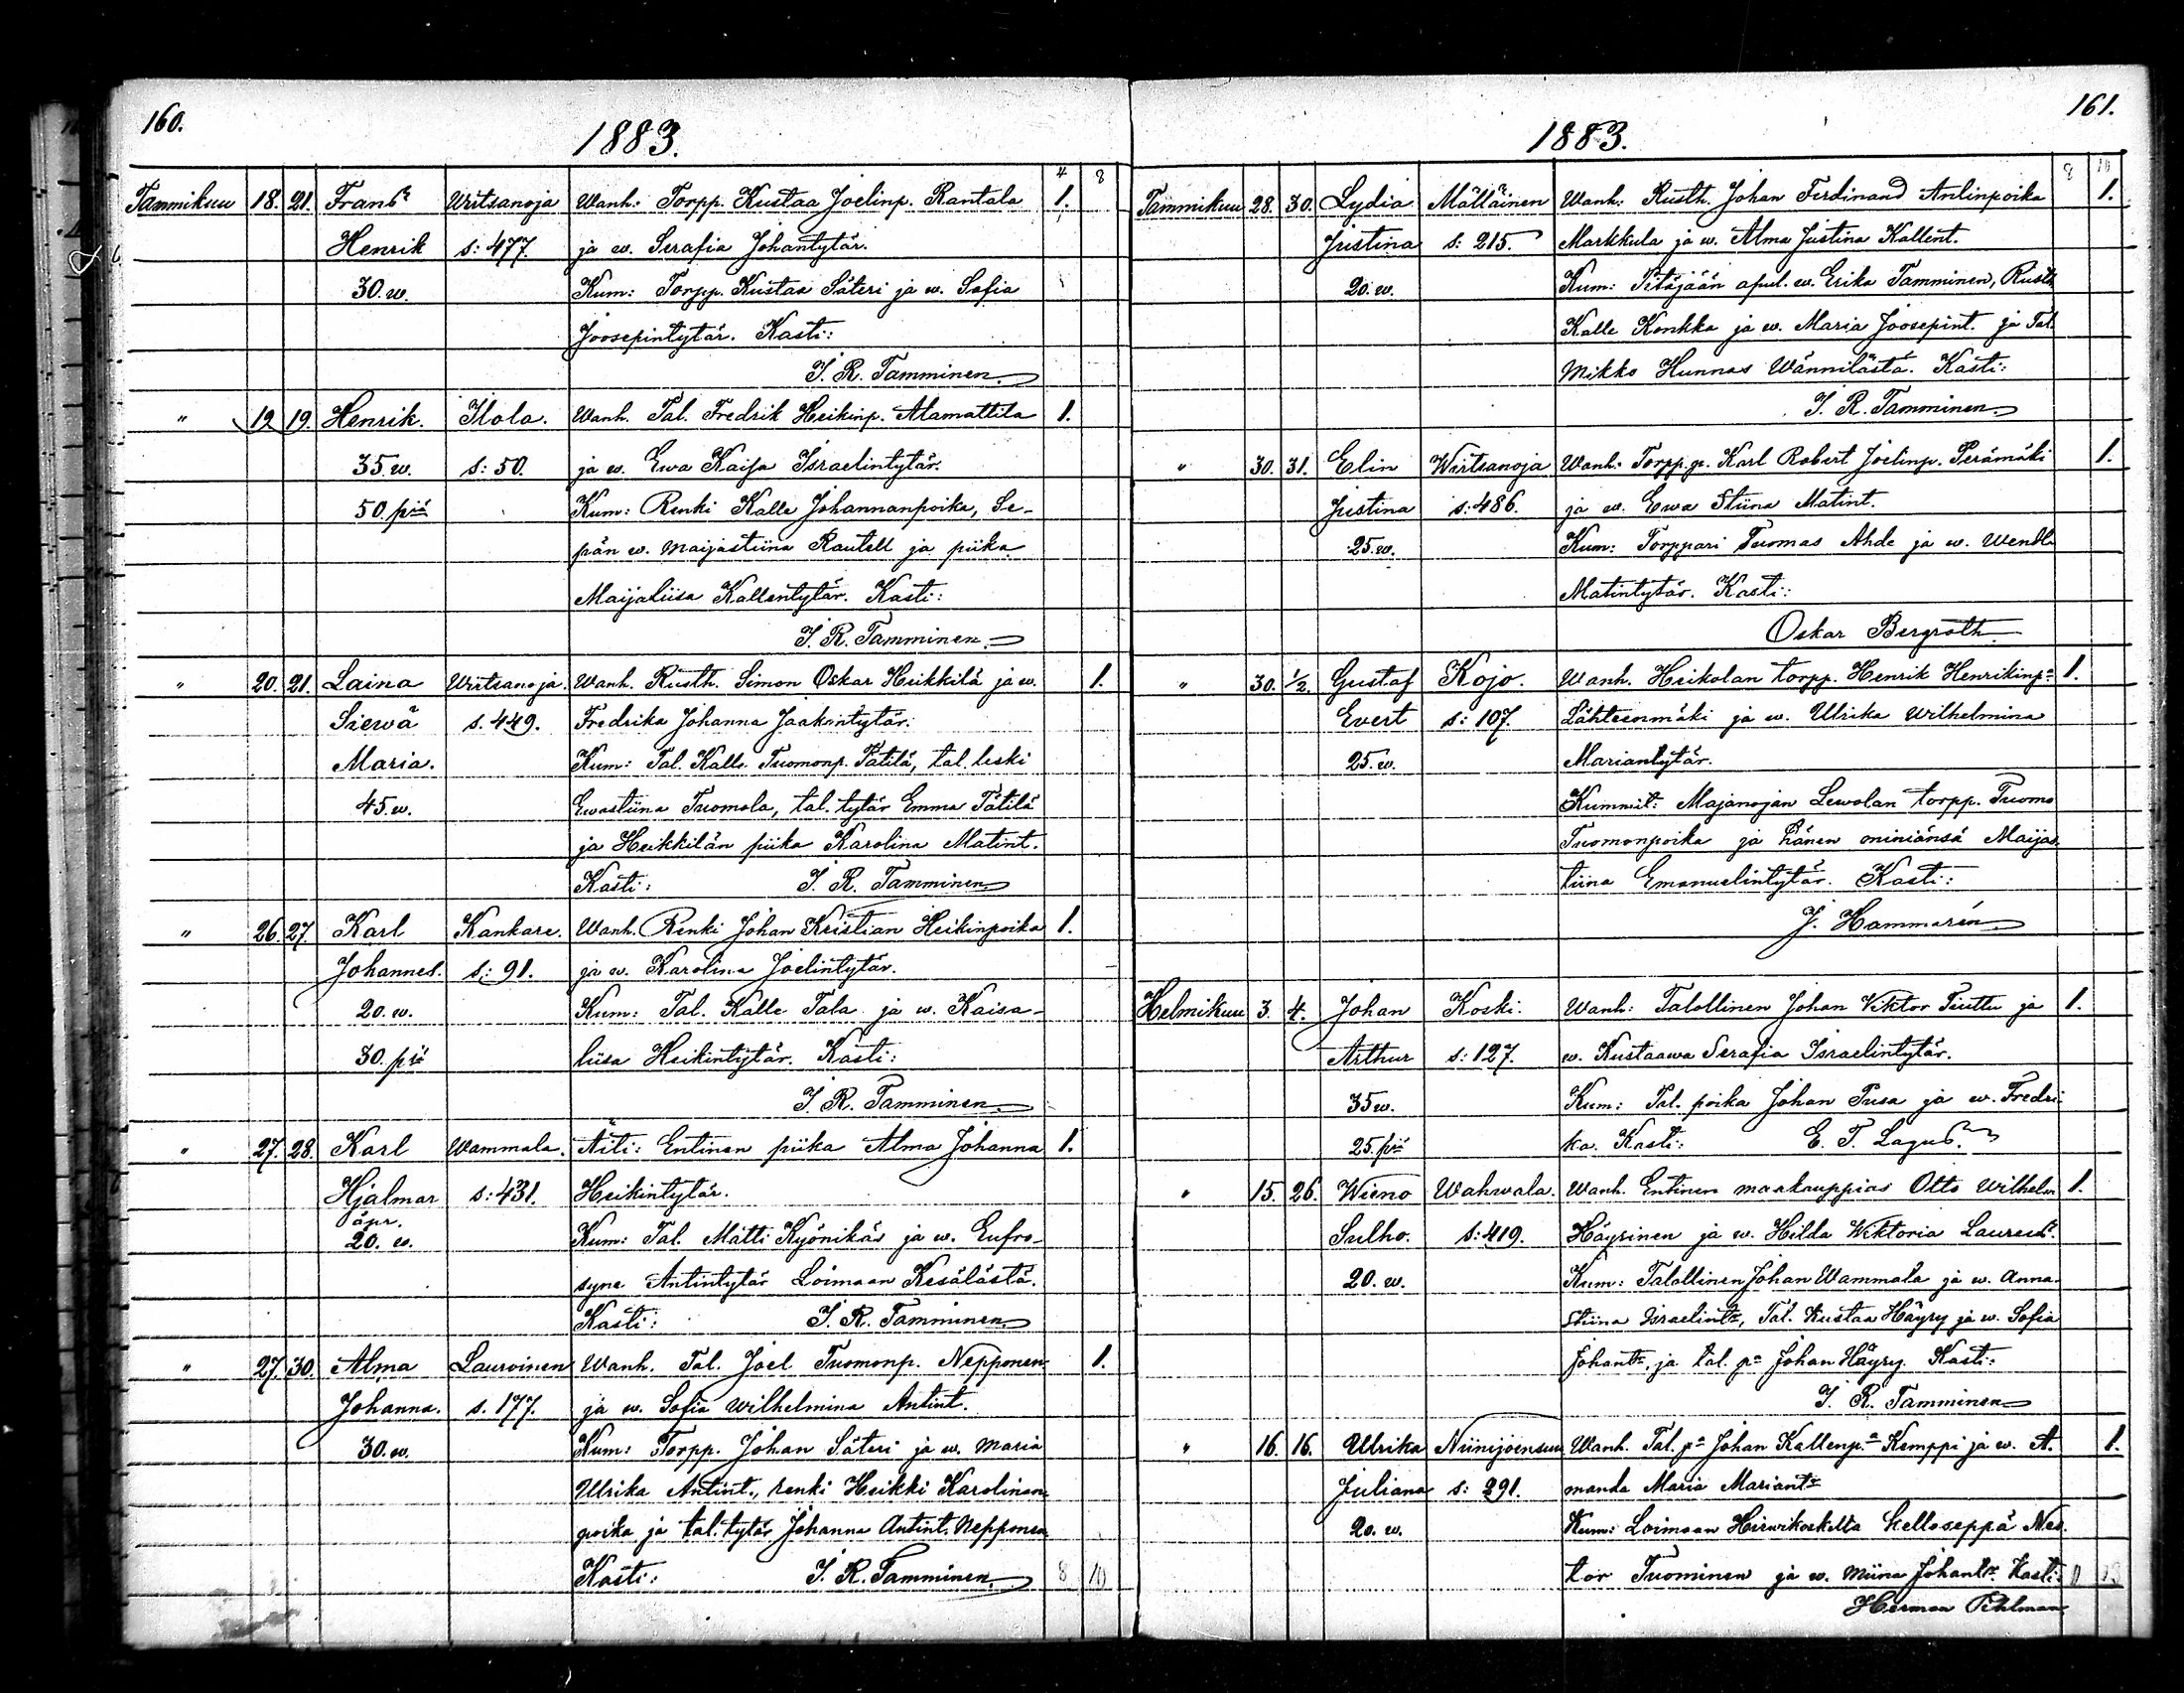 160.
1883.
4 8
Tammikuu 18. 21. Frans Wirtsanoja Wanh: Torpp. Kustaa Joelinp. Rantala 1.
Henrik s: 477. ja w. Serafia Johantytär.
30. w. Kum: Torpp. Kustaa Säteri ja w. Sofia
Joosepintytär. Kasti:
J. R. Tamminen.
" 12 19. Henrik. Ilola. Wanh. Tal. Fredrik Heikinp. Alamattila 1.
35 w. s: 50. ja w. Ewa Kaisa Israelintytär.
50. piä Kum: Renki Kalle Johannanpoika, Se-
pän w. Maijastiina Rautell ja piika
Maijaliisa Kallentytär. Kasti:
J. R. Tamminen.
" 20. 21. Laina Wirtsanoja. Wanh. Rusth. Simon Oskar Heikkilä ja w. 1.
Siewä s. 449. Fredrika Johanna Jaakintytär.
Maria. Kum: Tal. Kalle Tuomonp. Tätilä, tal. leski
45. w. Ewastiina Tuomola, tal. tytär Emma Tätilä
ja Heikkilän piika Karolina Matint.
Kasti: J. R. Tamminen.
" 26. 27. Karl Kankare. Wanh. Renki Johan Kristian Heikinpoika 1.
Johannes. s: 91. ja w. Karolina Joelintytär.
20. w. Kum: Tal. Kalle Tala ja w. Kaisa-
30. piä liisa Heikintytär. Kasti:
J. R. Tamminen.
" 27. 28. Karl Wammala. Äiti: Entinen piika Alma Johanna 1.
Hjalmar s: 431. Heikintytär.
äpr.
20. w. Kum: Tal. Matti Kyönikäs ja w. Eufro-
syne Antintytär Loimaan Kesälästä.
Kasti: J. R. Tamminen.
" 27. 30. Alma Lauroinen Wanh. Tal. Joel Tuomonp. Nepponen 1.
Johanna. s. 177. ja w. Sofia Wilhelmina Antint.
30. w. Kum: Torpp. Johan Säteri ja w. Maria
Ulrika Antint., renki Heikki Karolinan
poika ja tal. tytär Johanna Antint. Nepponen
Kasti: J. R. Tamminen. 8 10
161.
1883.
8 10
Tammikuu 28. 30. Lydia Mältäinen Wanh: Rusth. Johan Ferdinand Antinpoika 1.
Justina s: 215. Markkula ja w. Alma Justina Kallent.
20. w. Kum: Pitäjään apul. w. Erika Tamminen, Rusth.
Kalle Konkka ja w. Maria Joosepint. ja Tal.
Mikko Hunnas Wännilästä. Kasti:
J. R. Tamminen.
" 30. 31. Elin Wirtsanoja Wanh: Torpp. p. Karl Robert Joelinp. Perämäki 1.
Justina s: 486. ja w. Ewa Stiina Matint.
25. w. Kum: Torppari Tuomas Ahde ja w. Wendla
Matintytär. Kasti:
Oskar Bergroth.
" 30. 1/2. Gustaf Kojo. Wanh. Heikolan torpp. Henrik Henrikinpa 1.
Evert s: 107. Lähteenmäki ja w. Ulrika Wilhelmina
25. w. Mariantytär.
Kummit: Majanojan Lewolan torpp. Tuomo
Tuomonpoika ja hänen miniänsä Maijas-
tiina Emanuelintytär. Kasti:
J. Hammarén
Helmikuu 3. 4. Johan Koski. Wanh: Talollinen Johan Viktor Tuittu ja 1.
Arthur s: 127. w. Kustaawa Serafia Israelintytär.
35 w. Kum: Tal. poika Johan Pusa ja w. Fredri-
25. piä ka. Kasti: E. T. Lagus.
" 15. 26. Wieno Wahwala. Wanh. Entinen maakauppias Otto Wilhelm 1.
Sulho. s: 419. Häyrinen ja w. Hilda Wiktoria Laureus.
20. w. Kum: Talollinen Johan Wammala ja w. Anna-
Stiina Israelintr, Tal. Kustaa Häyry ja w. Sofia
Johantr, ja tal. pa Johan Häyry. Kasti:
J. R. Tamminen
" 16. 16. Ulrika Niinijoensuu Wanh. Tal. pa Johan Kallenp.a Kemppi ja w. A- 1.
Juliana s: 291. manda Maria Mariantr
20. w. Kum: Loimaan Hirwikoskelta kelloseppä Nes-
tor Tuominen ja w. Miina Johantr. Kasti:
Herman Pihlman